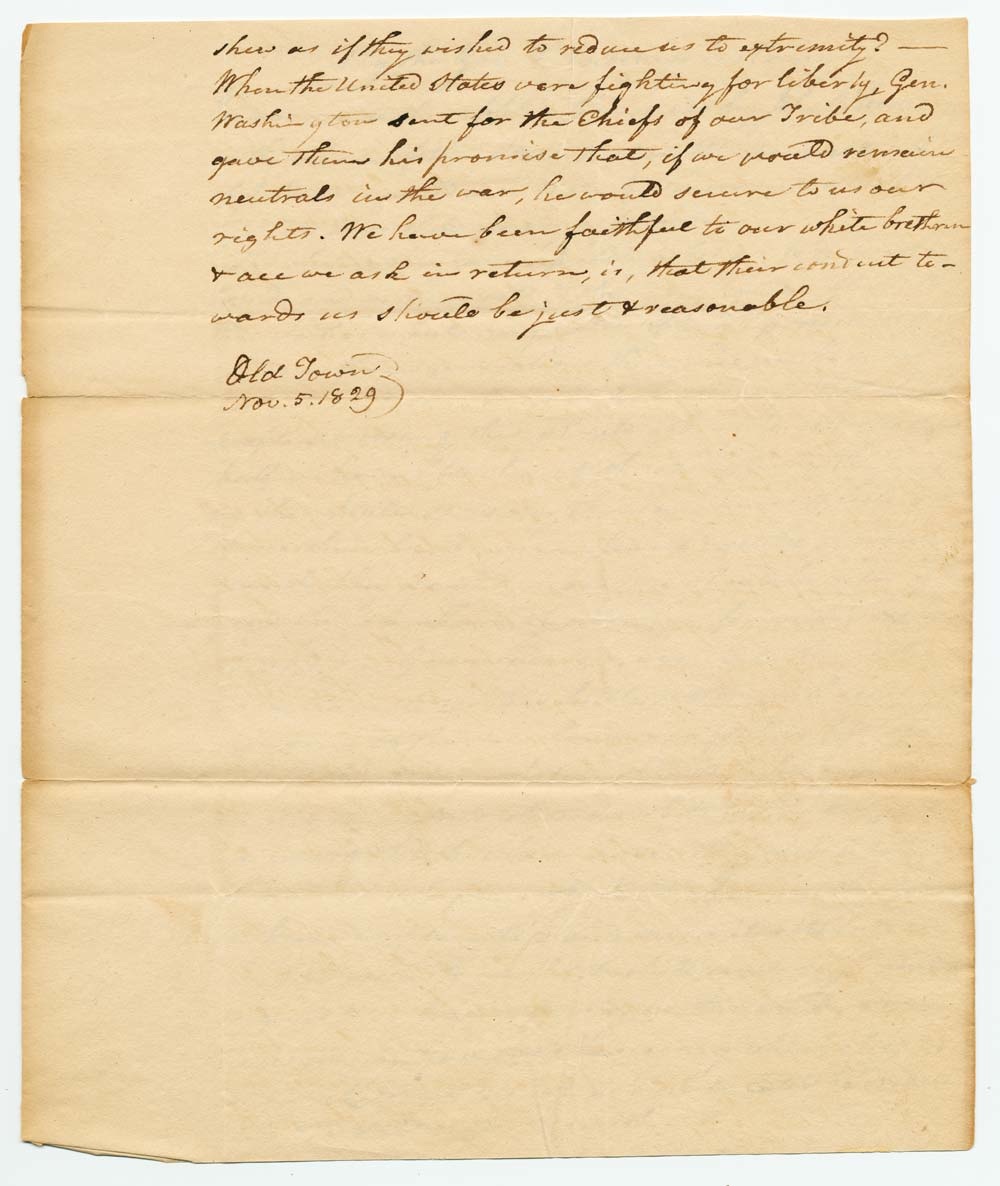 shew as if they wished to reduce us to extremity? —
When the United States were fighting for liberty, Gen.
Washington sent for the Chiefs of our Tribe, and
gave them his promise that, if we would remain
neutrals in the war, he would secure to us our
rights. We have been faithful to our white brethren
& all we ask in return, is, that their conduct to-
wards us should be just & reasonable.
Old Town
Nov. 5. 1829